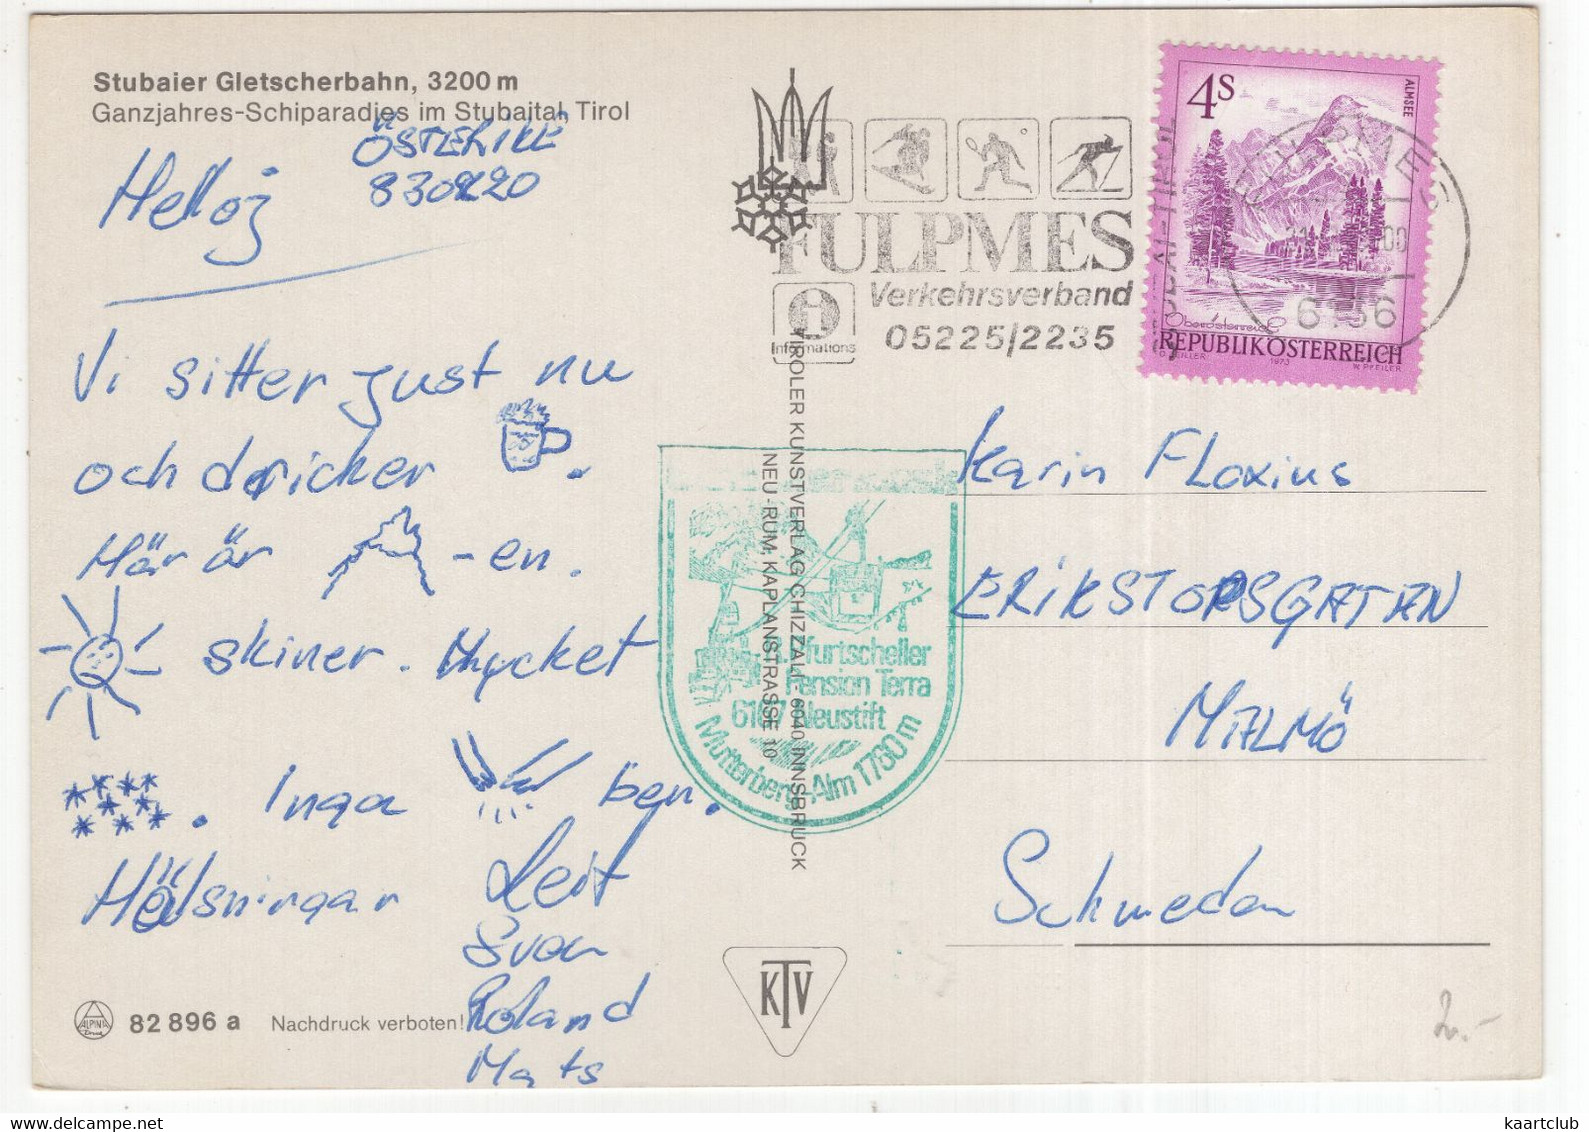 Stubaier Gletscherbahn, 3200 m
Ganzjahres-Schiparadies im Stubaital, Tirol
ÖSTERIKE
830220
Helloj
Vi sitter just nu
och dricker .
Här är -en.
skiner. Mycket
. Inga ben.
Hälsningar Leif
Sven
Roland
Mats
82 896 a Nachdruck verboten!
ALPINA
KTV
TIROLER KUNSTVERLAG CHIZZALI · 6040 INNSBRUCK
NEU-RUM, KAPLANSTRASSE 10
FULPMES
Verkehrsverband
05225/2235
Informations
furtscheller
Pension Terra
6167 Neustift
Mutterberg-Alm 1760m
4S
ALMSEE
Oberösterreich
REPUBLIK ÖSTERREICH
1973
W. PFEILER
FULPMES
6166
Karin Floxius
ERIKSTORPSGATAN
MALMÖ
Schweden
kaartclub